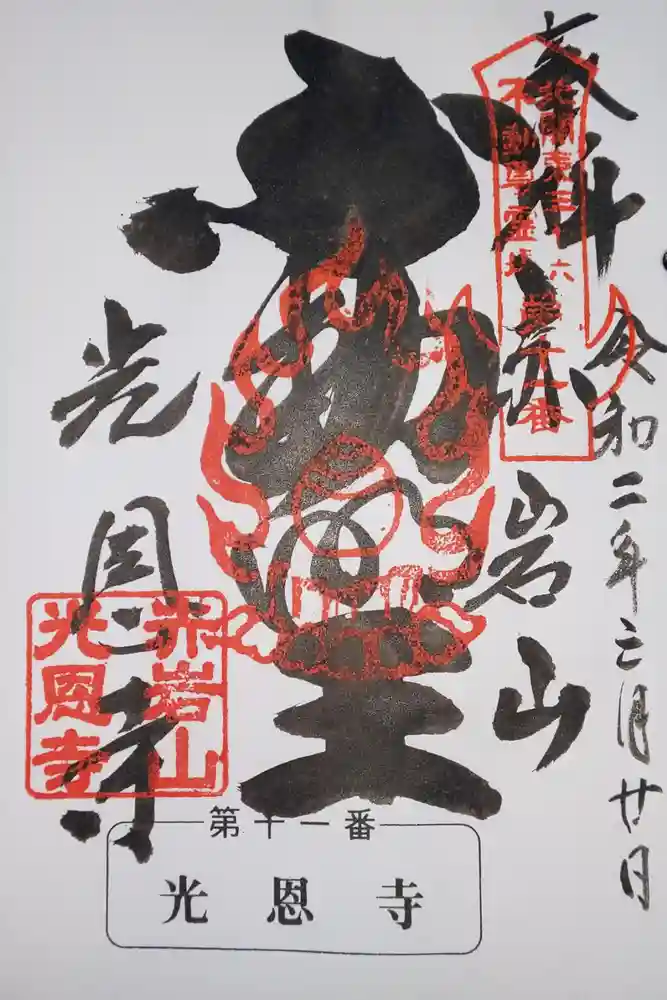 奉拝
北関東三十六
不動尊霊場
第十一番
赤岩山
令和二年三月廿日
光恩寺
赤岩山
光恩寺
第十一番
光恩寺